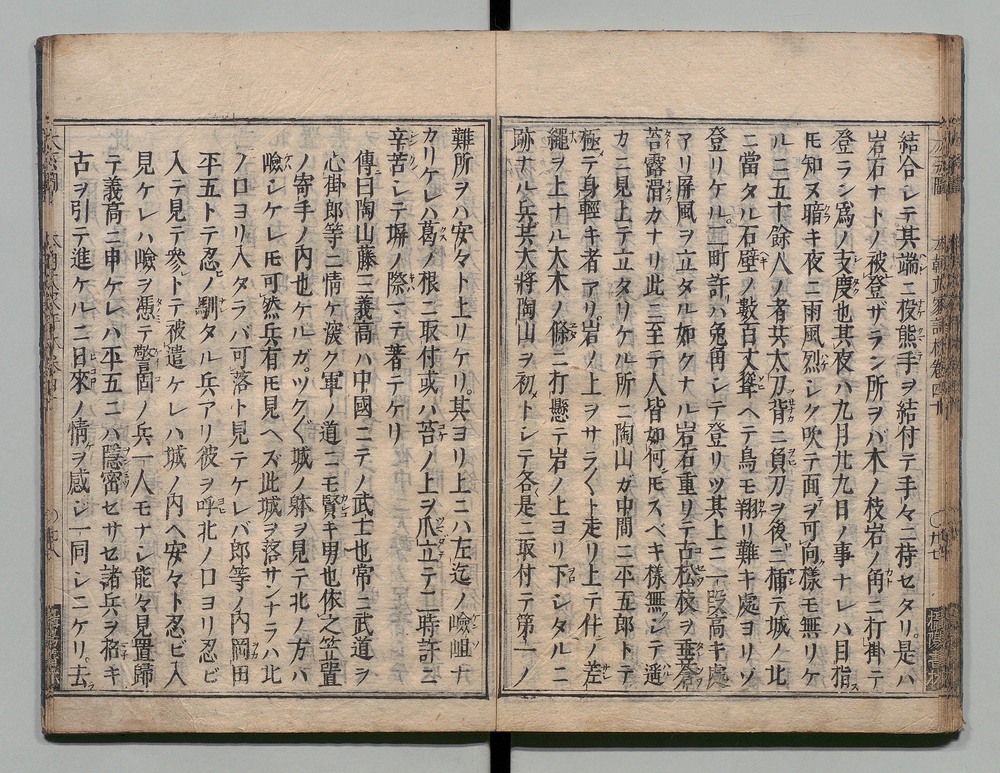 結合シテ其端ニ役熊手ヲ結付テ手々ニ持セタリ是ハ
岩石ナトノ被登ザラン所ヲバ木ノ枝岩ノ角ニ打掛テ
登ラン爲ノ支度也其夜ハ九月卅九日ノ事ナレハ目指
モ知ヌ暗キ夜ニ雨風烈シク吹テ面ヲ可向樣モ無リケ
ルニ五十餘人ノ者共太刀背ニ負刀ヲ後ニ插テ城ノ北
ニ當タル石壁ノ數百丈聳ヘテ鳥モ翔リ難キ處ヨリソ
登リケル二町許ハ兔角シテ登リツ其上ニ一段高キ處
アリ屏風ヲ立タル如クナル岩石重リテ古松枝ヲ垂蒼
苔露滑カナリ此ニ至テ人皆如何モスベキ樣無シテ遥
カニ見上テ立タリケル所ニ陶山ガ中間ニ平五郎トテ
極テ身輕キ者アリ岩ノ上ヲサラ〱ト走リ上テ件ノ差
繩ヲ上ナル大木ノ條ニ打懸テ岩ノ上ヨリ下シタルニ
跡ナル兵共大將陶山ヲ初トシテ各是ニ取付テ第一ノ
難所ヲハ安々ト上リケリ其ヨリ上ニハ左迄ノ嶮岨ナ
カリケレハ葛ノ根ニ取付或ハ苔ノ上ヲ爪立テ二時許ニ
辛苦シテ塀ノ際マテ著テケリ
傳曰陶山藤三義高ハ中國ニテノ武士也常ニ武道ヲ
心掛郎等ニ情ケ深ク軍ノ道ニモ賢キ男也依之笠置
ノ寄手ノ内也ケルガツク〲城ノ躰ヲ見テ北ノ方ハ
嶮シケレモ可然兵有モ見ヘズ此城ヲ落サンナラハ北
ノ口ヨリ入タラバ可落ト見テケレバ郎等ノ内岡田
平五トテ忍ノ馴タル兵アリ彼ヲ呼北ノ口ヨリ忍ビ
入テ見テ參レトテ被遣ケレハ城ノ内ヘ安々ト忍ビ入
見ケレハ嶮ヲ憑テ警固ノ兵一人モナシ能々見置歸
テ義高ニ申ケレハ平五ニハ隱密セサセ諸兵ヲ招キ
古ヲ引テ進ケルニ日來ノ情ヲ感シ一同シニケリ去